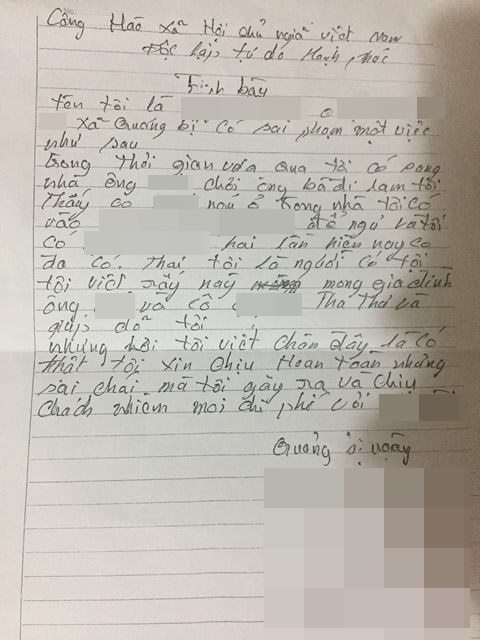 Công Hào xã Hội chủ nghĩa việt Nam
Độc lập tự do Hạnh phúc
Trình bầy
tên tôi là
xã Quảng bị có sai phạm một việc
như sau
trong thời gian vừa qua tôi có sang
nhà ông chơi ông bà đi làm tôi
Thấy cô nou ở trong nhà tôi có
vào để ngủ và tôi
có hai lần hiện nay cô
đã có Thai tôi là người có tội
tôi viết rấy nay mong gia đình
ông và cô Tha Thơ và
giúp đỡ tôi
những nời tôi viết chên đây là có
thật tôi xin chịu Hoan toàn những
sai chái mà tôi gây ra và chịu
chách nhiệm mọi chi phế với
Quảng bị ngày